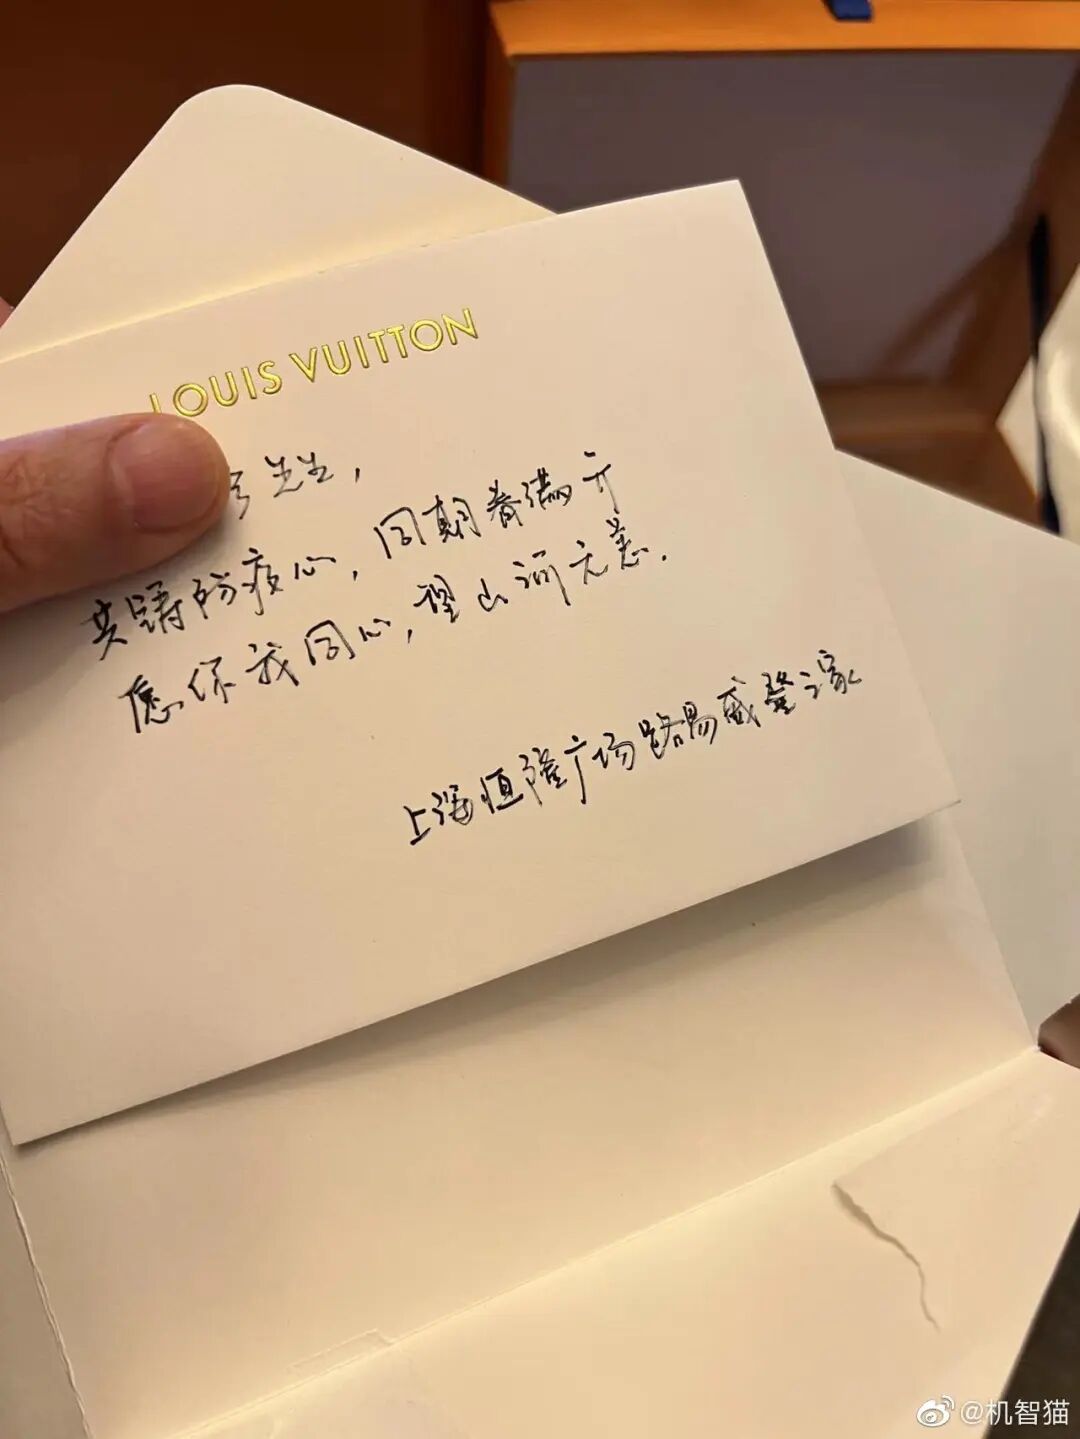 LOUIS VUITTON
先生，
共踌防疫心，同期春满开
愿你我同心，望山河无恙．
上海恒隆广场路易威登之家
@机智猫